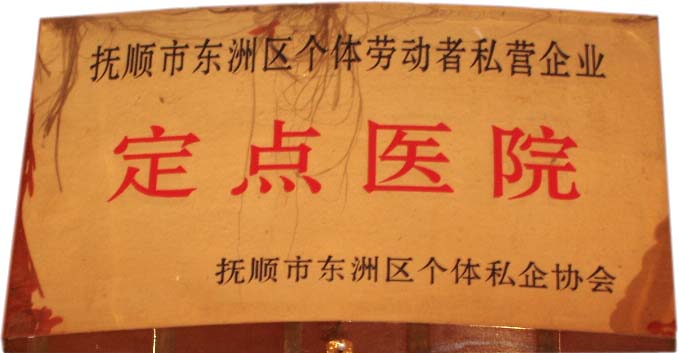 抚顺市东洲区个体劳动者私营企业
定点医院
抚顺市东洲区个体私企协会